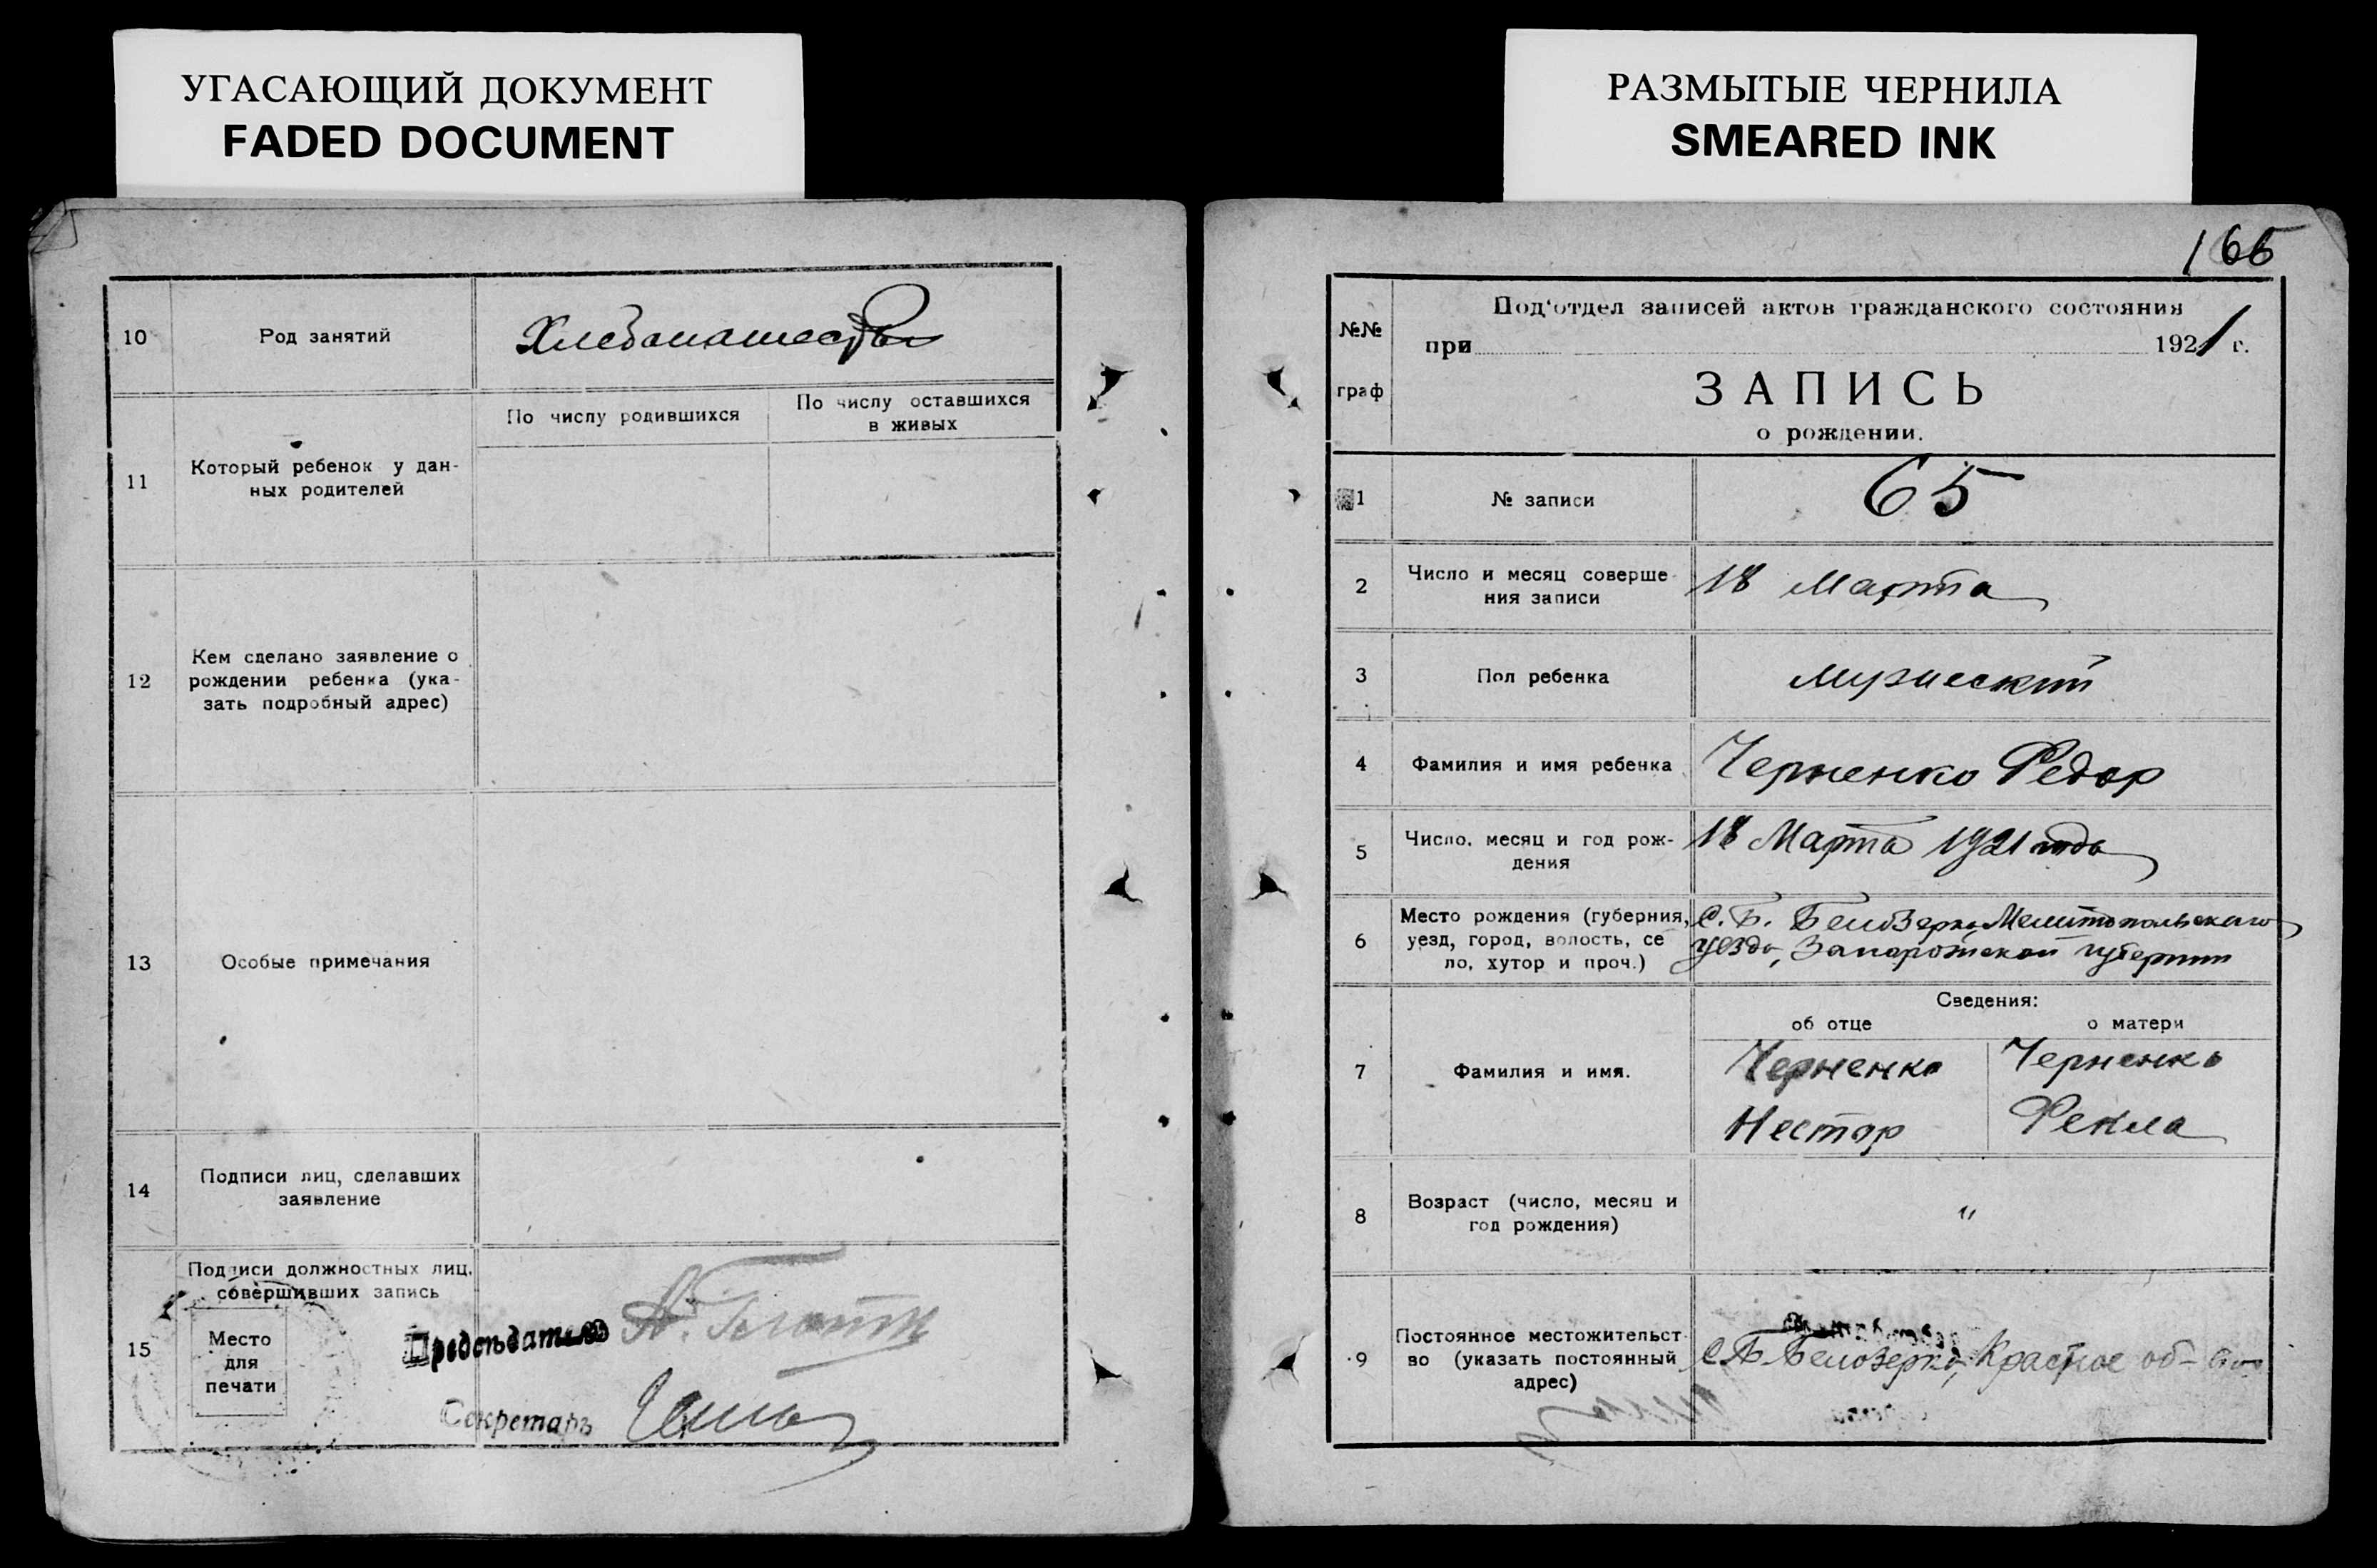 УГАСАЮЩИЙ ДОКУМЕНТ
FADED DOCUMENT
10
Род занятий
Хлебопашество
11
Который ребенок у дан-
ных родителей
По числу родившихся
По числу оставшихся
в живых
12
Кем сделано заявление о
рождении ребенка (ука-
зать подробный адрес)
13
Особые примечания
14
Подписи лиц, сделавших
заявление
15
Подписи должностных лиц,
совершивших запись
Место
для
печати
Председатель
Секретарь
РАЗМЫТЫЕ ЧЕРНИЛА
SMEARED INK
166
№№
граф
Под‘отдел записей актов гражданского состояния
при 1921 г.
ЗАПИСЬ
о рождении.
1
№ записи
65
2
Число и месяц соверше-
ния записи
18 Марта
3
Пол ребенка
мужеский
4
Фамилия и имя ребенка
Черненко Федор
5
Число, месяц и год рож-
дения
18 Марта 1921 года
6
Место рождения (губерния,
уезд, город, волость, се
ло, хутор и проч.)
С. Б. Белозерка, Мелитопольского
уезда, Запорожской губернии
Сведения:
об отце
о матери
7
Фамилия и имя.
Черненко
Нестор
Черненко
Фекла
8
Возраст (число, месяц и
год рождения)
"
9
Постоянное местожительст-
во (указать постоянный
адрес)
С Б Белозерка, Красное об-